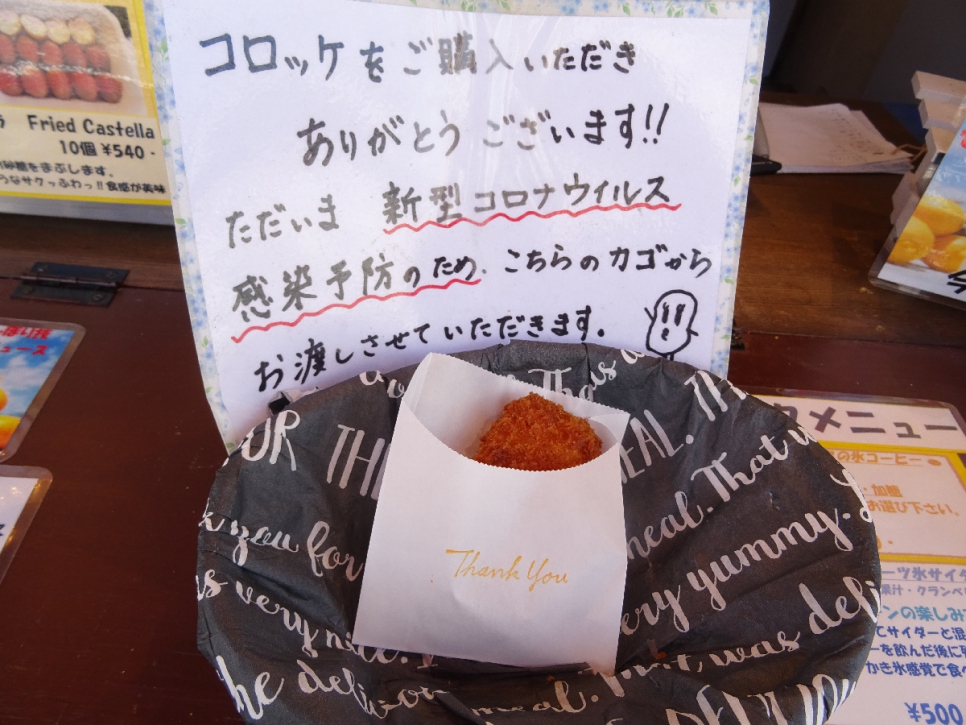 コロッケをご購入いただき
ありがとうございます!!
ただいま 新型コロナウイルス
感染予防のため、こちらのカゴから
お渡しさせていただきます。
Fried Castella
10個 ¥540-
砂糖をまぶします。
うなサクっふわっ!!食感が美味
ュース
メニュー
の氷コーヒー
・加糖
お選び下さい。
ツ氷サイダ
果汁・クランベリ
ンの楽しみ
てサイダーと混
ーを飲んだ後に
かき氷感覚で食べ
¥500
Thank You
OUR THE
MEAL. TH
k you for
meal. That w
as very nice.
very yummy.
the delicio
meal. That was deli